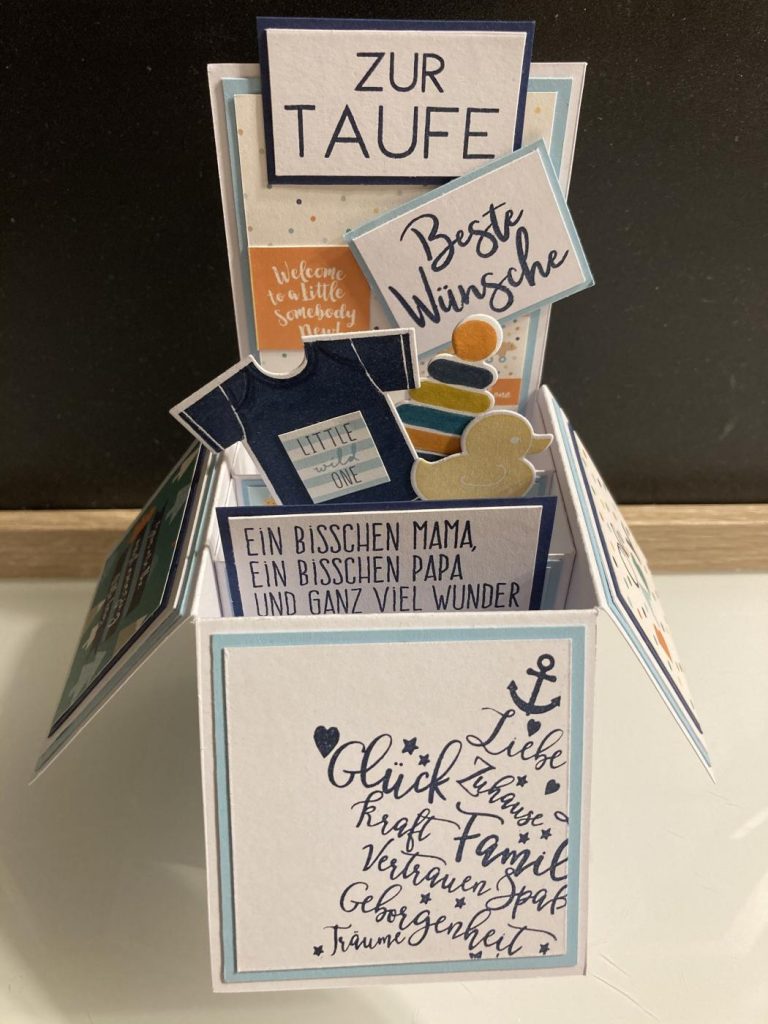 ZUR
TAUFE
Beste
Wünsche
Welcome
to a Little
Somebody
New!
LITTLE
wild
ONE
EIN BISSCHEN MAMA,
EIN BISSCHEN PAPA
UND GANZ VIEL WUNDER
Liebe
Glück
Zuhause
Kraft
Famil
Vertrauen
Spaß
Geborgenheit
Träume